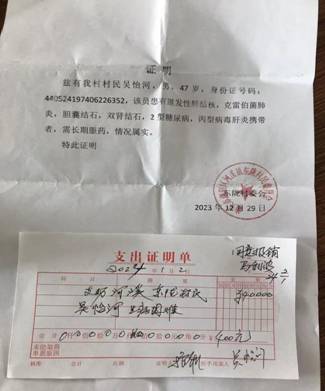 证明
兹有我村村民吴怡河，男，47岁，身份证号码：
440524197406226352，该员患有原发性肝结核，克雷伯菌肺
炎，胆囊结石，双肾结石，2型糖尿病，丙型病毒肝炎携带
者，需长期服药，情况属实。
特此证明
东陇村委会
2023年12月29日
支出证明单
2024年1月2日
同意报销
河溪东陇村民
¥400.00
吴怡河生病困难
400元